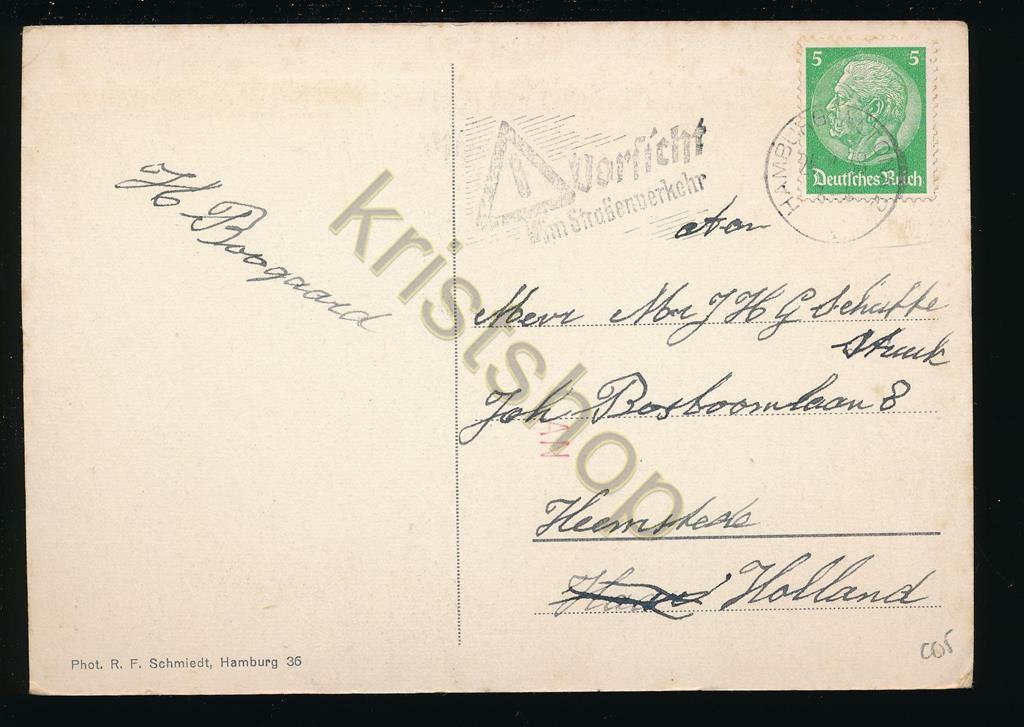 5 5
Deutsches Reich
HAMBURG
Vorsicht
im Straßenverkehr
Aan
H Boogaard
Mevr Mr J H G Schutte
Struuk
Joh Bosboomlaan 8
AN
Heemstede
Holland
Phot. R. F. Schmiedt, Hamburg 36
kristshop